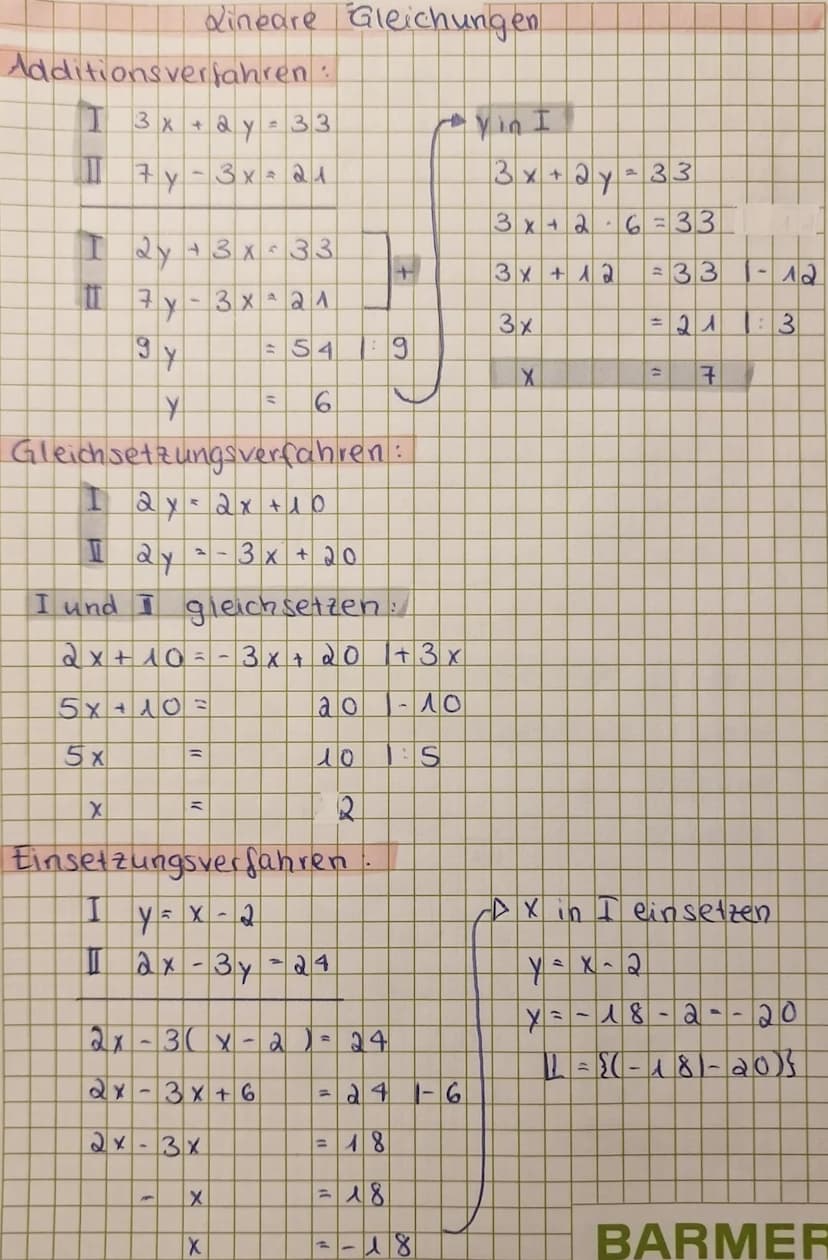 Lineare Gleichungen
Additionsverfahren:
I 3x + 2y = 33
II 7y - 3x = 21
I 2y + 3x = 33
II 7y - 3x = 21
+
9y = 54 |: 9
y = 6
y in I
3x + 2y = 33
3x + 2 · 6 = 33
3x + 12 = 33 |- 12
3x = 21 |: 3
x = 7
Gleichsetzungsverfahren:
I 2y = 2x + 10
II 2y = - 3x + 20
I und II gleichsetzen:
2x + 10 = - 3x + 20 |+ 3x
5x + 10 = 20 |- 10
5x = 10 |: 5
x = 2
Einsetzungsverfahren:
I y = x - 2
II 2x - 3y = 24
2x - 3( x - 2 ) = 24
2x - 3x + 6 = 24 |- 6
2x - 3x = 18
- x = 18
x = - 18
x in I einsetzen
y = x - 2
y = - 18 - 2 = - 20
𝕃 = {(- 18|- 20)}
BARMER